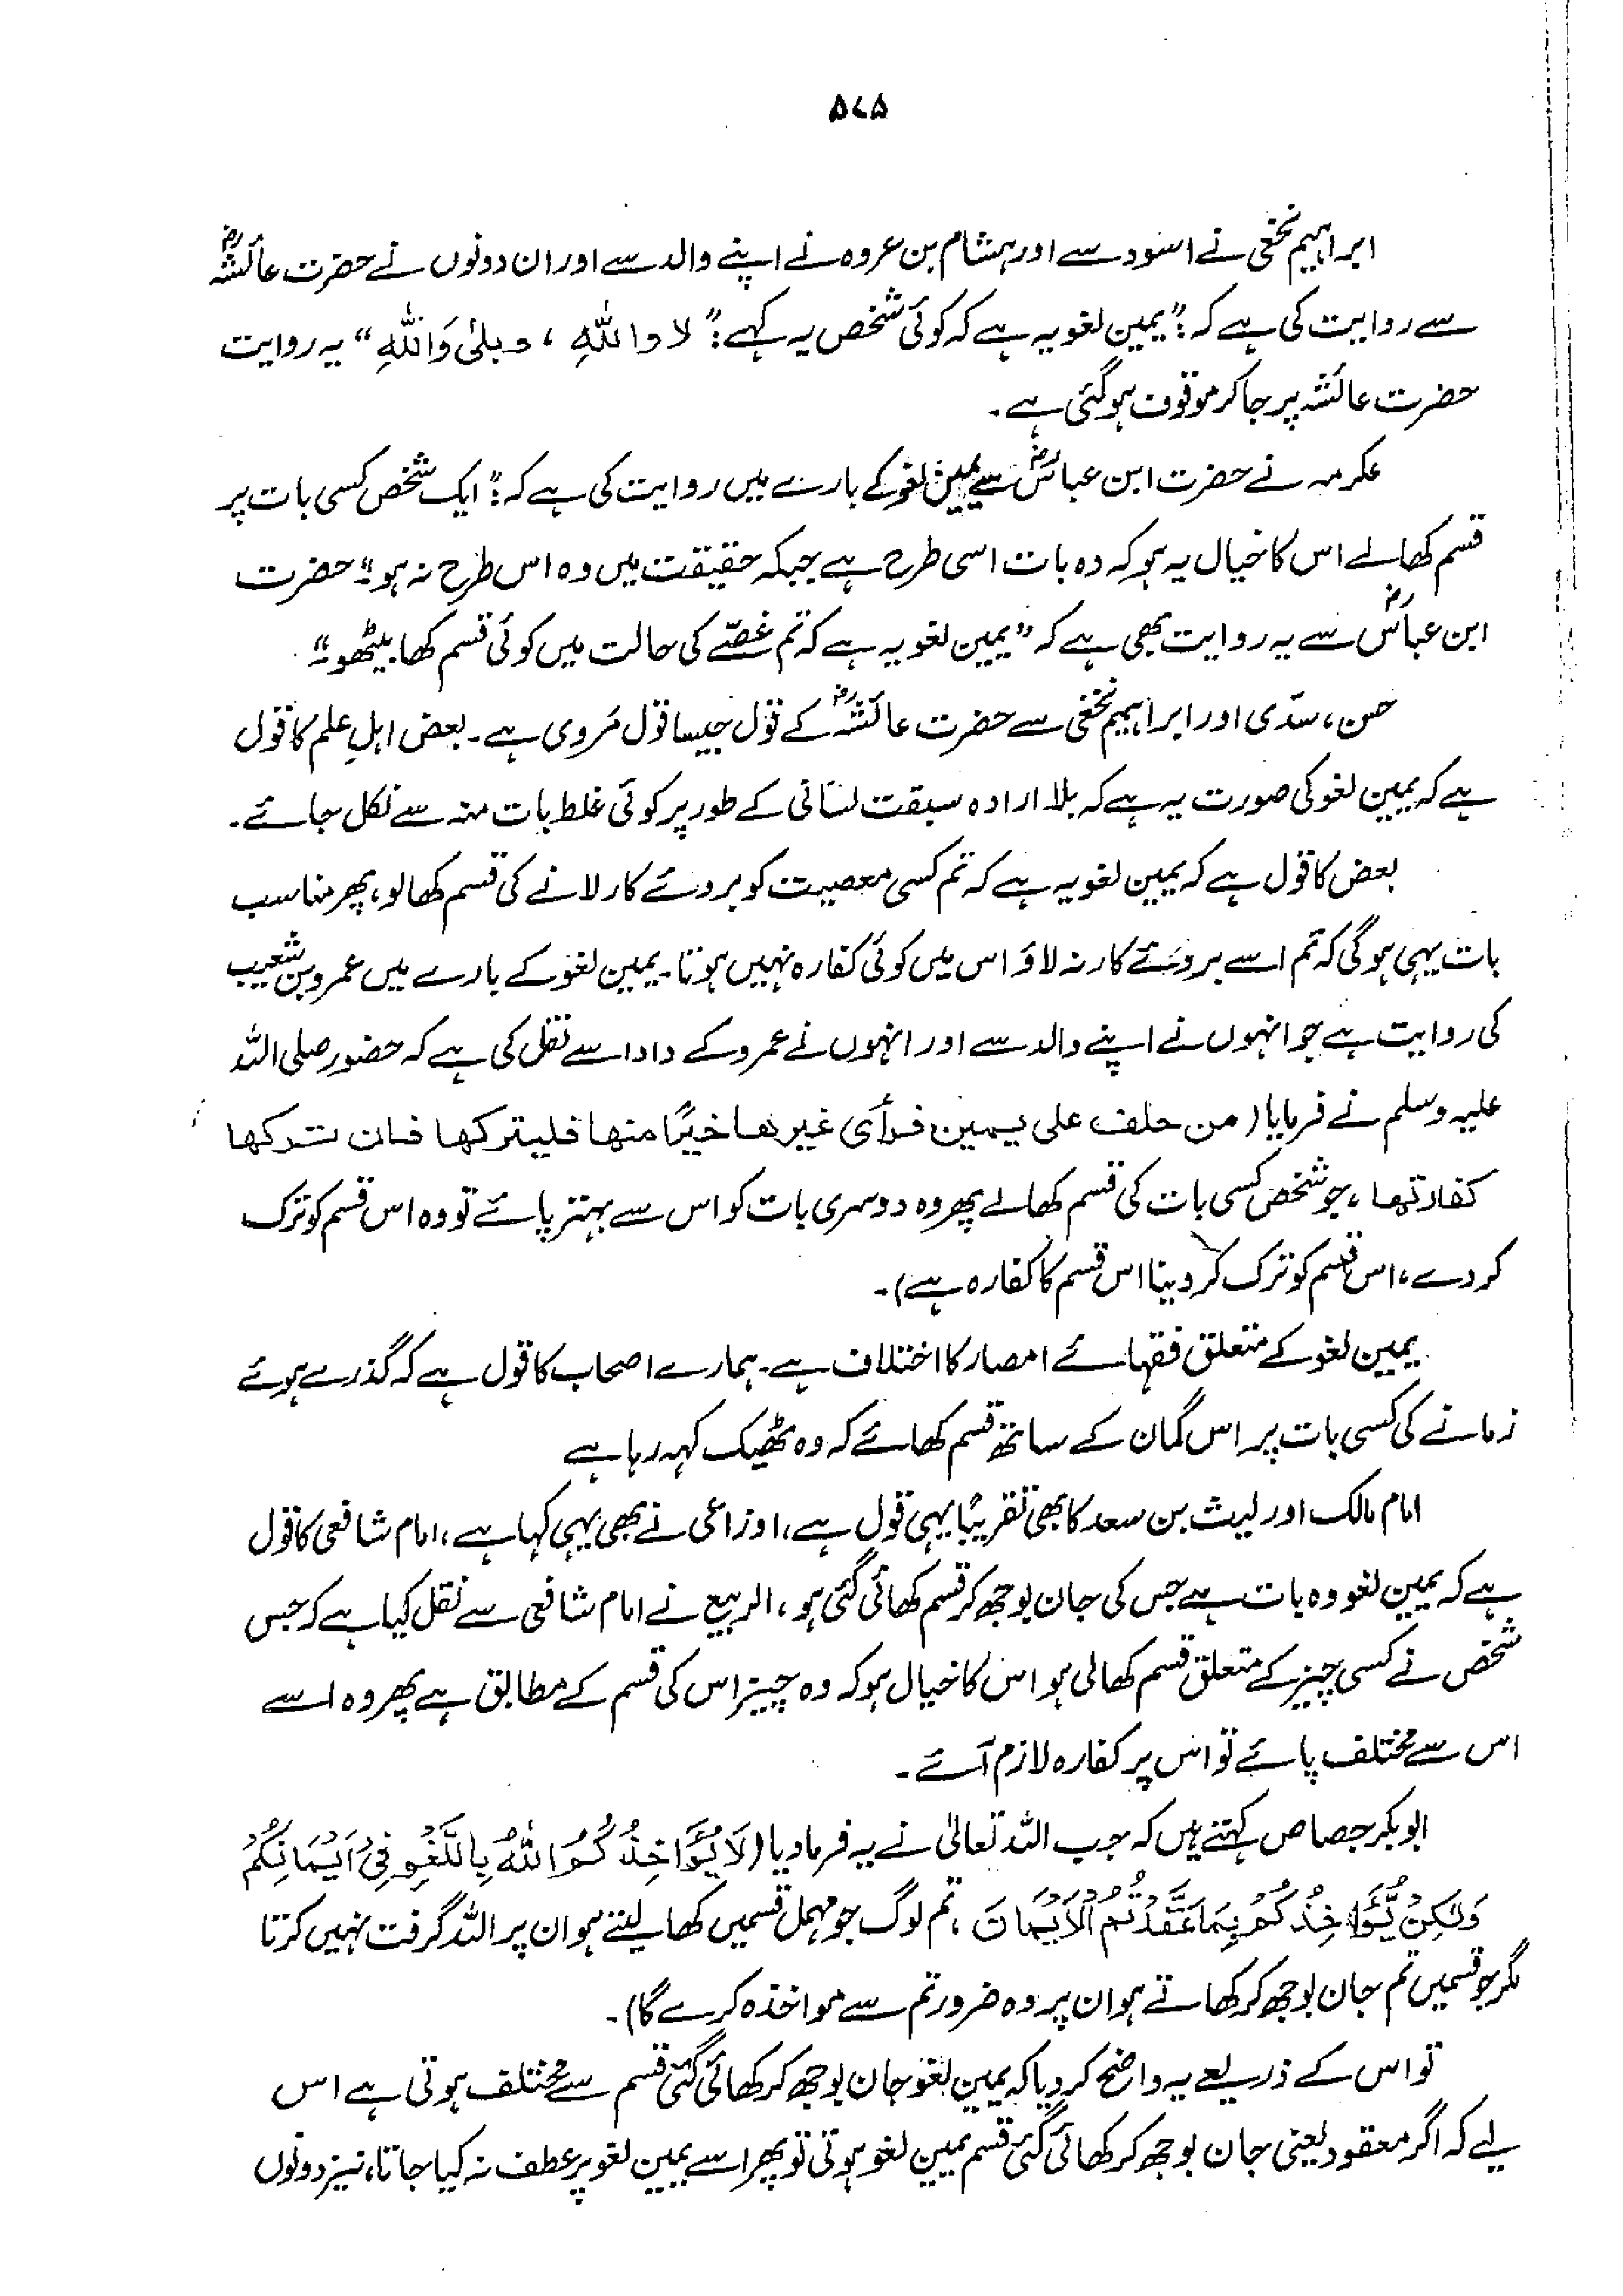 ۵۷۵
ابراہیم نخعی نے اسود سے اور ہشام بن عروہ نے اپنے والد سے اور ان دونوں نے حضرت عائشہؓ
سے روایت کی ہے کہ: "یمین لغو یہ ہے کہ کوئی شخص یہ کہے: "لا واللّٰہِ ، و بلیٰ وَاللّٰہِ" یہ روایت
حضرت عائشہ پر جا کر موقوف ہوگئی ہے۔
عکرمہ نے حضرت ابن عباسؓ سے یمین لغو کے بارے میں روایت کی ہے کہ: "ایک شخص کسی بات پر
قسم کھالے اس کا خیال یہ ہو کہ وہ بات اسی طرح ہے جبکہ حقیقت میں وہ اس طرح نہ ہو۔" حضرت
ابن عباسؓ سے یہ روایت بھی ہے کہ "یمین لغو یہ ہے کہ تم غصّے کی حالت میں کوئی قسم کھا بیٹھو۔"
حسن، سدّی اور ابراہیم نخعی سے حضرت عائشہؓ کے قول جیسا قول مَروی ہے۔ بعض اہلِ علم کا قول
ہے کہ یمین لغو کی صورت یہ ہے کہ بلا ارادہ سبقت لسانی کے طور پر کوئی غلط بات منہ سے نکل جائے۔
بعض کا قول ہے کہ یمین لغو یہ ہے کہ تم کسی معصیت کو بروئے کار لانے کی قسم کھالو، پھر مناسب
بات یہی ہوگی کہ تم اسے بروئے کار نہ لاؤ اس میں کوئی کفارہ نہیں ہوتا۔ یمین لغو کے بارے میں عمرو بن شعیب
کی روایت ہے جو انہوں نے اپنے والد سے اور انہوں نے عمرو کے دادا سے نقل کی ہے کہ حضور صلی اللہ
علیہ وسلم نے فرمایا (من حلف علی یمین فرأی غیرھا خیرًا منھا فلیترکھا فان ترکھا
کفارتھا ، جو شخص کسی بات کی قسم کھالے پھر وہ دوسری بات کو اس سے بہتر پائے تو وہ اس قسم کو ترک
کردے، اس قسم کو ترک کردینا اس قسم کا کفارہ ہے)۔
یمین لغو کے متعلق فقہائے امصار کا اختلاف ہے۔ ہمارے اصحاب کا قول ہے کہ گذرے ہوئے
زمانے کی کسی بات پر اس گمان کے ساتھ قسم کھائے کہ وہ ٹھیک کہہ رہا ہے
امام مالک اور لیث بن سعد کا بھی تقریبًا یہی قول ہے، اوزاعی نے بھی یہی کہا ہے، امام شافعی کا قول
ہے کہ یمین لغو وہ بات ہے جس کی جان بوجھ کر قسم کھائی گئی ہو، الربیع نے امام شافعی سے نقل کیا ہے کہ جس
شخص نے کسی چیز کے متعلق قسم کھالی ہو اس کا خیال ہو کہ وہ چیز اس کی قسم کے مطابق ہے پھر وہ اسے
اس سے مختلف پائے تو اس پر کفارہ لازم آئے۔
ابو بکر جصاص کہتے ہیں کہ جب اللہ تعالیٰ نے یہ فرما دیا (لَا یُؤَاخِذُ کُمُ اللّٰہُ بِاللَّغْوِ فِیْ اَیْمَانِکُمْ
وَلٰکِنْ یُّؤَاخِذُ کُمْ بِمَا عَقَّدْتُمُ الْاَیْمَانَ ، تم لوگ جو مہمل قسمیں کھا لیتے ہو ان پر اللہ گرفت نہیں کرتا
مگر جو قسمیں تم جان بوجھ کر کھاتے ہو ان پر وہ ضرور تم سے مواخذہ کرے گا)۔
تو اس کے ذریعے یہ واضح کر دیا کہ یمین لغو جان بوجھ کر کھائی گئی قسم سے مختلف ہوتی ہے اس
لیے کہ اگر معقود یعنی جان بوجھ کر کھائی گئی قسم یمین لغو ہوتی تو پھر اسے یمین لغو پر عطف نہ کیا جاتا، نیز دونوں